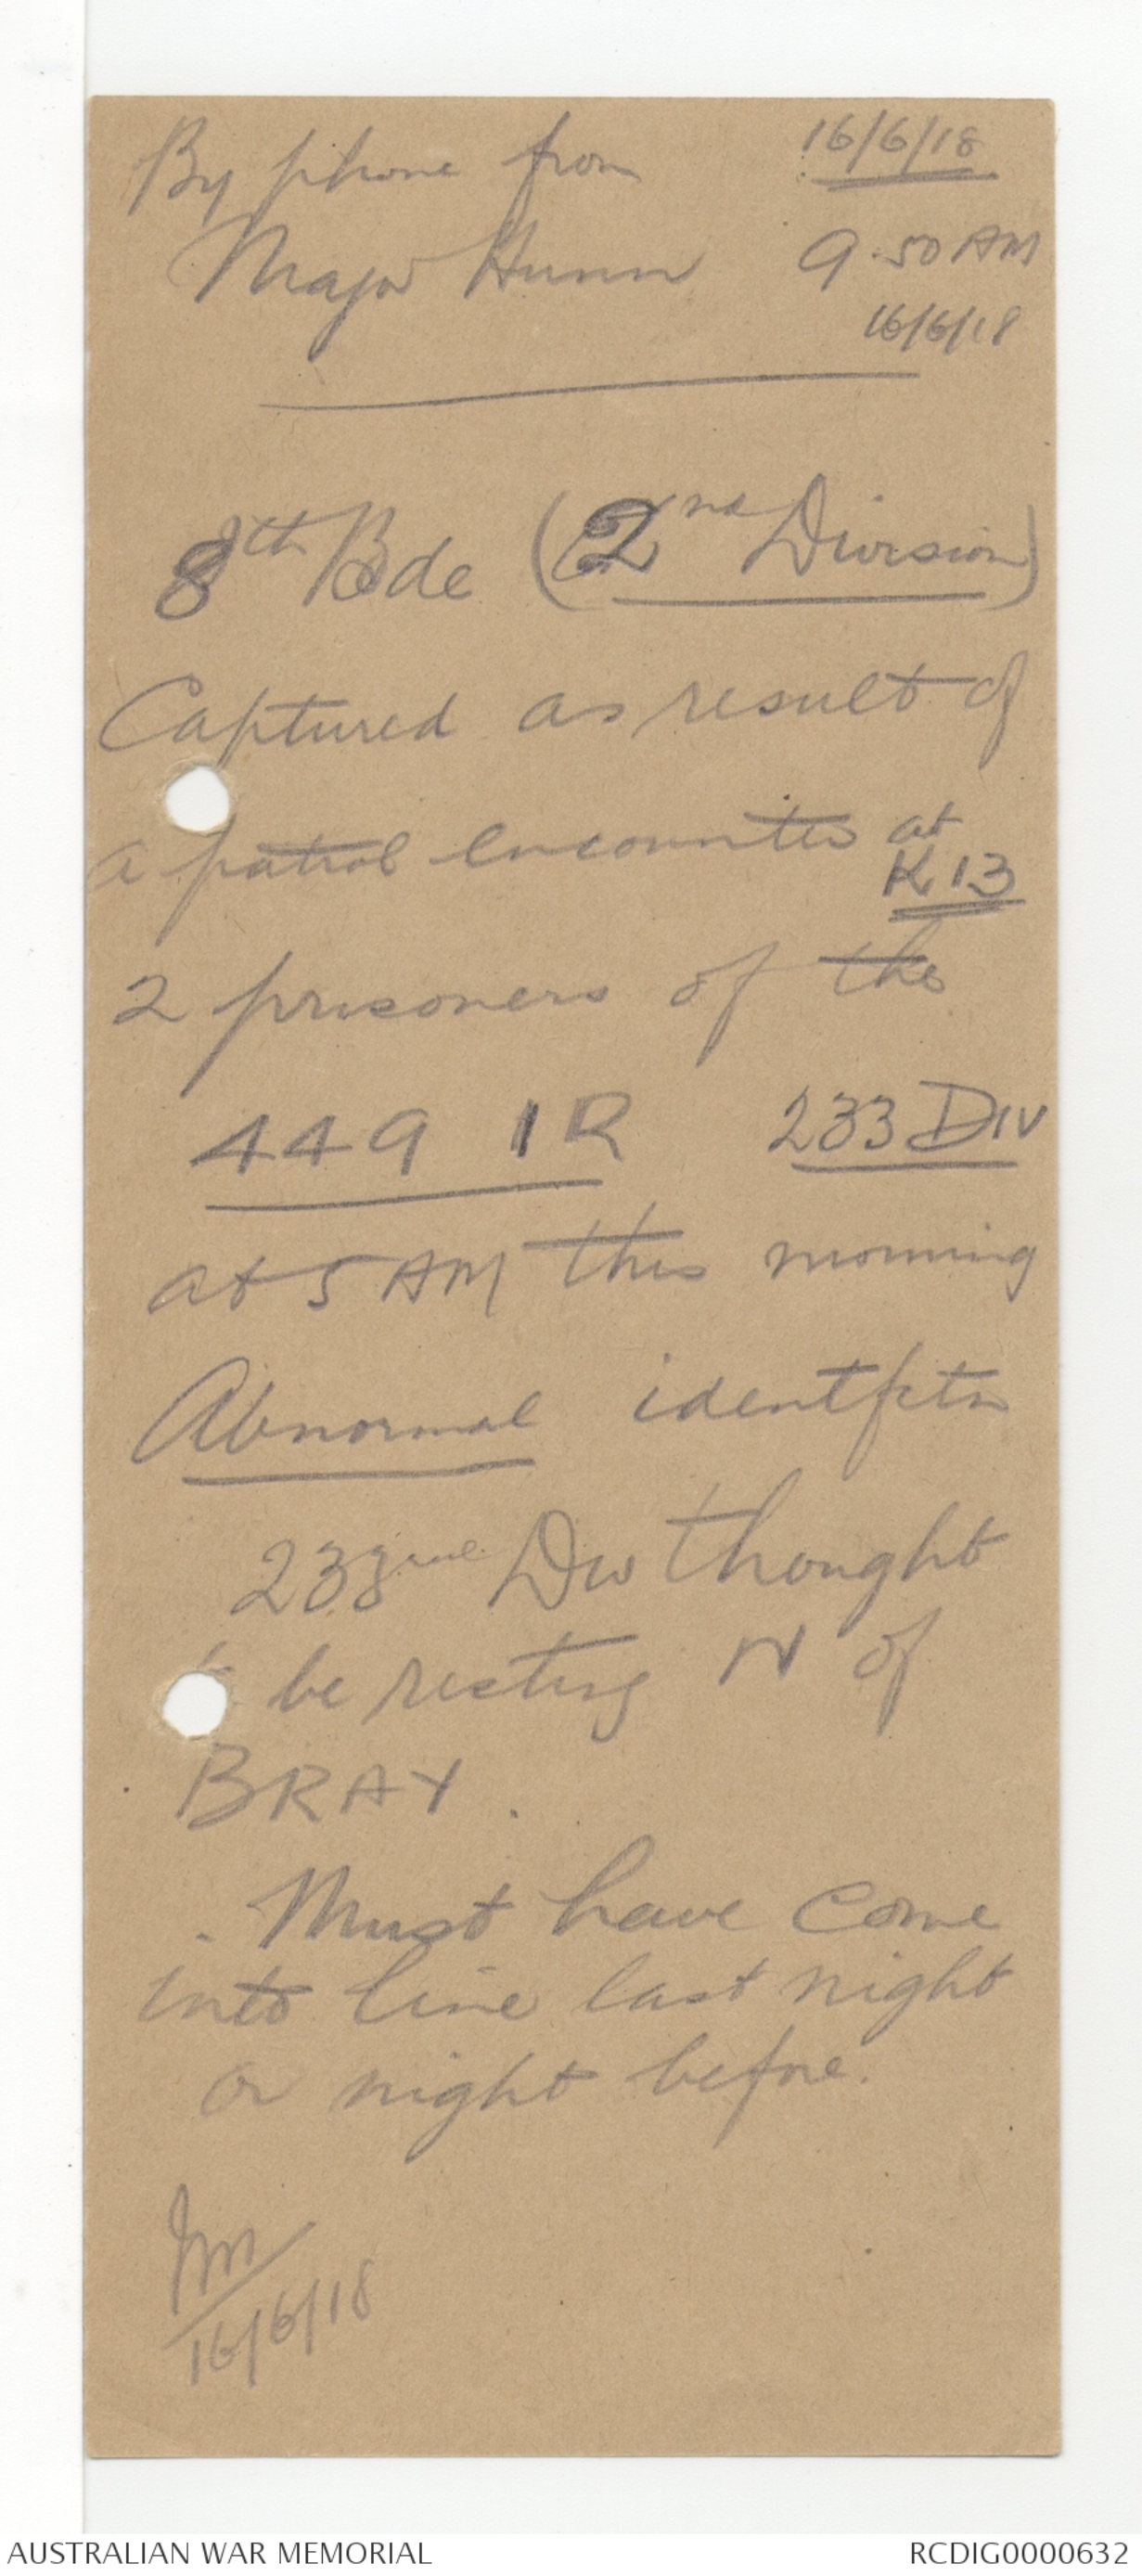 By phone from 16/6/18
Major Hunn 9.50 AM
16/6/18
8th Bde (2nd Division)
Captured as result of
a patrol encounter at
K 13
2 prisoners of the
449 IR 233 DIV
at 5 AM this morning
Abnormal identfctn
233 Div thought
to be resting N of
BRAY.
Must have come
into line last night
or night before.
16/6/18
AUSTRALIAN WAR MEMORIAL RCDIG0000632